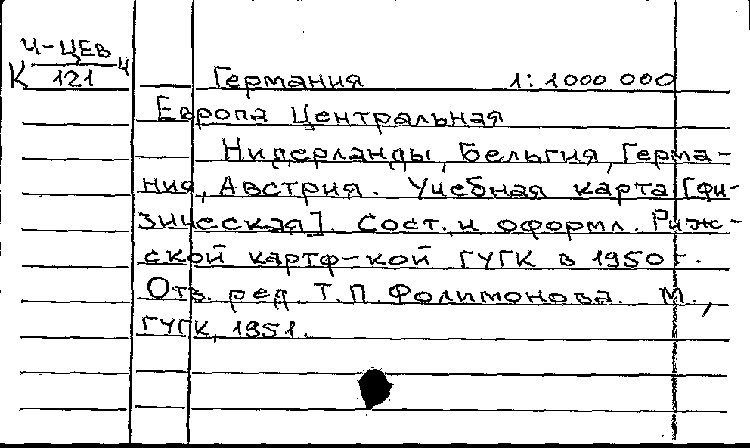 Ч-ЦЕв
К 121 ч
Германия 1: 1000 000
Европа Центральная
Нидерланды, Бельгия, Герма-
ния, Австрия. Учебная карта [фи-
зическая]. Сост. и оформл. Риж-
ской картф-кой ГУГК в 1950 г.
Отв. ред. Т.П. Филимонова. М.,
ГУГК, 1951.